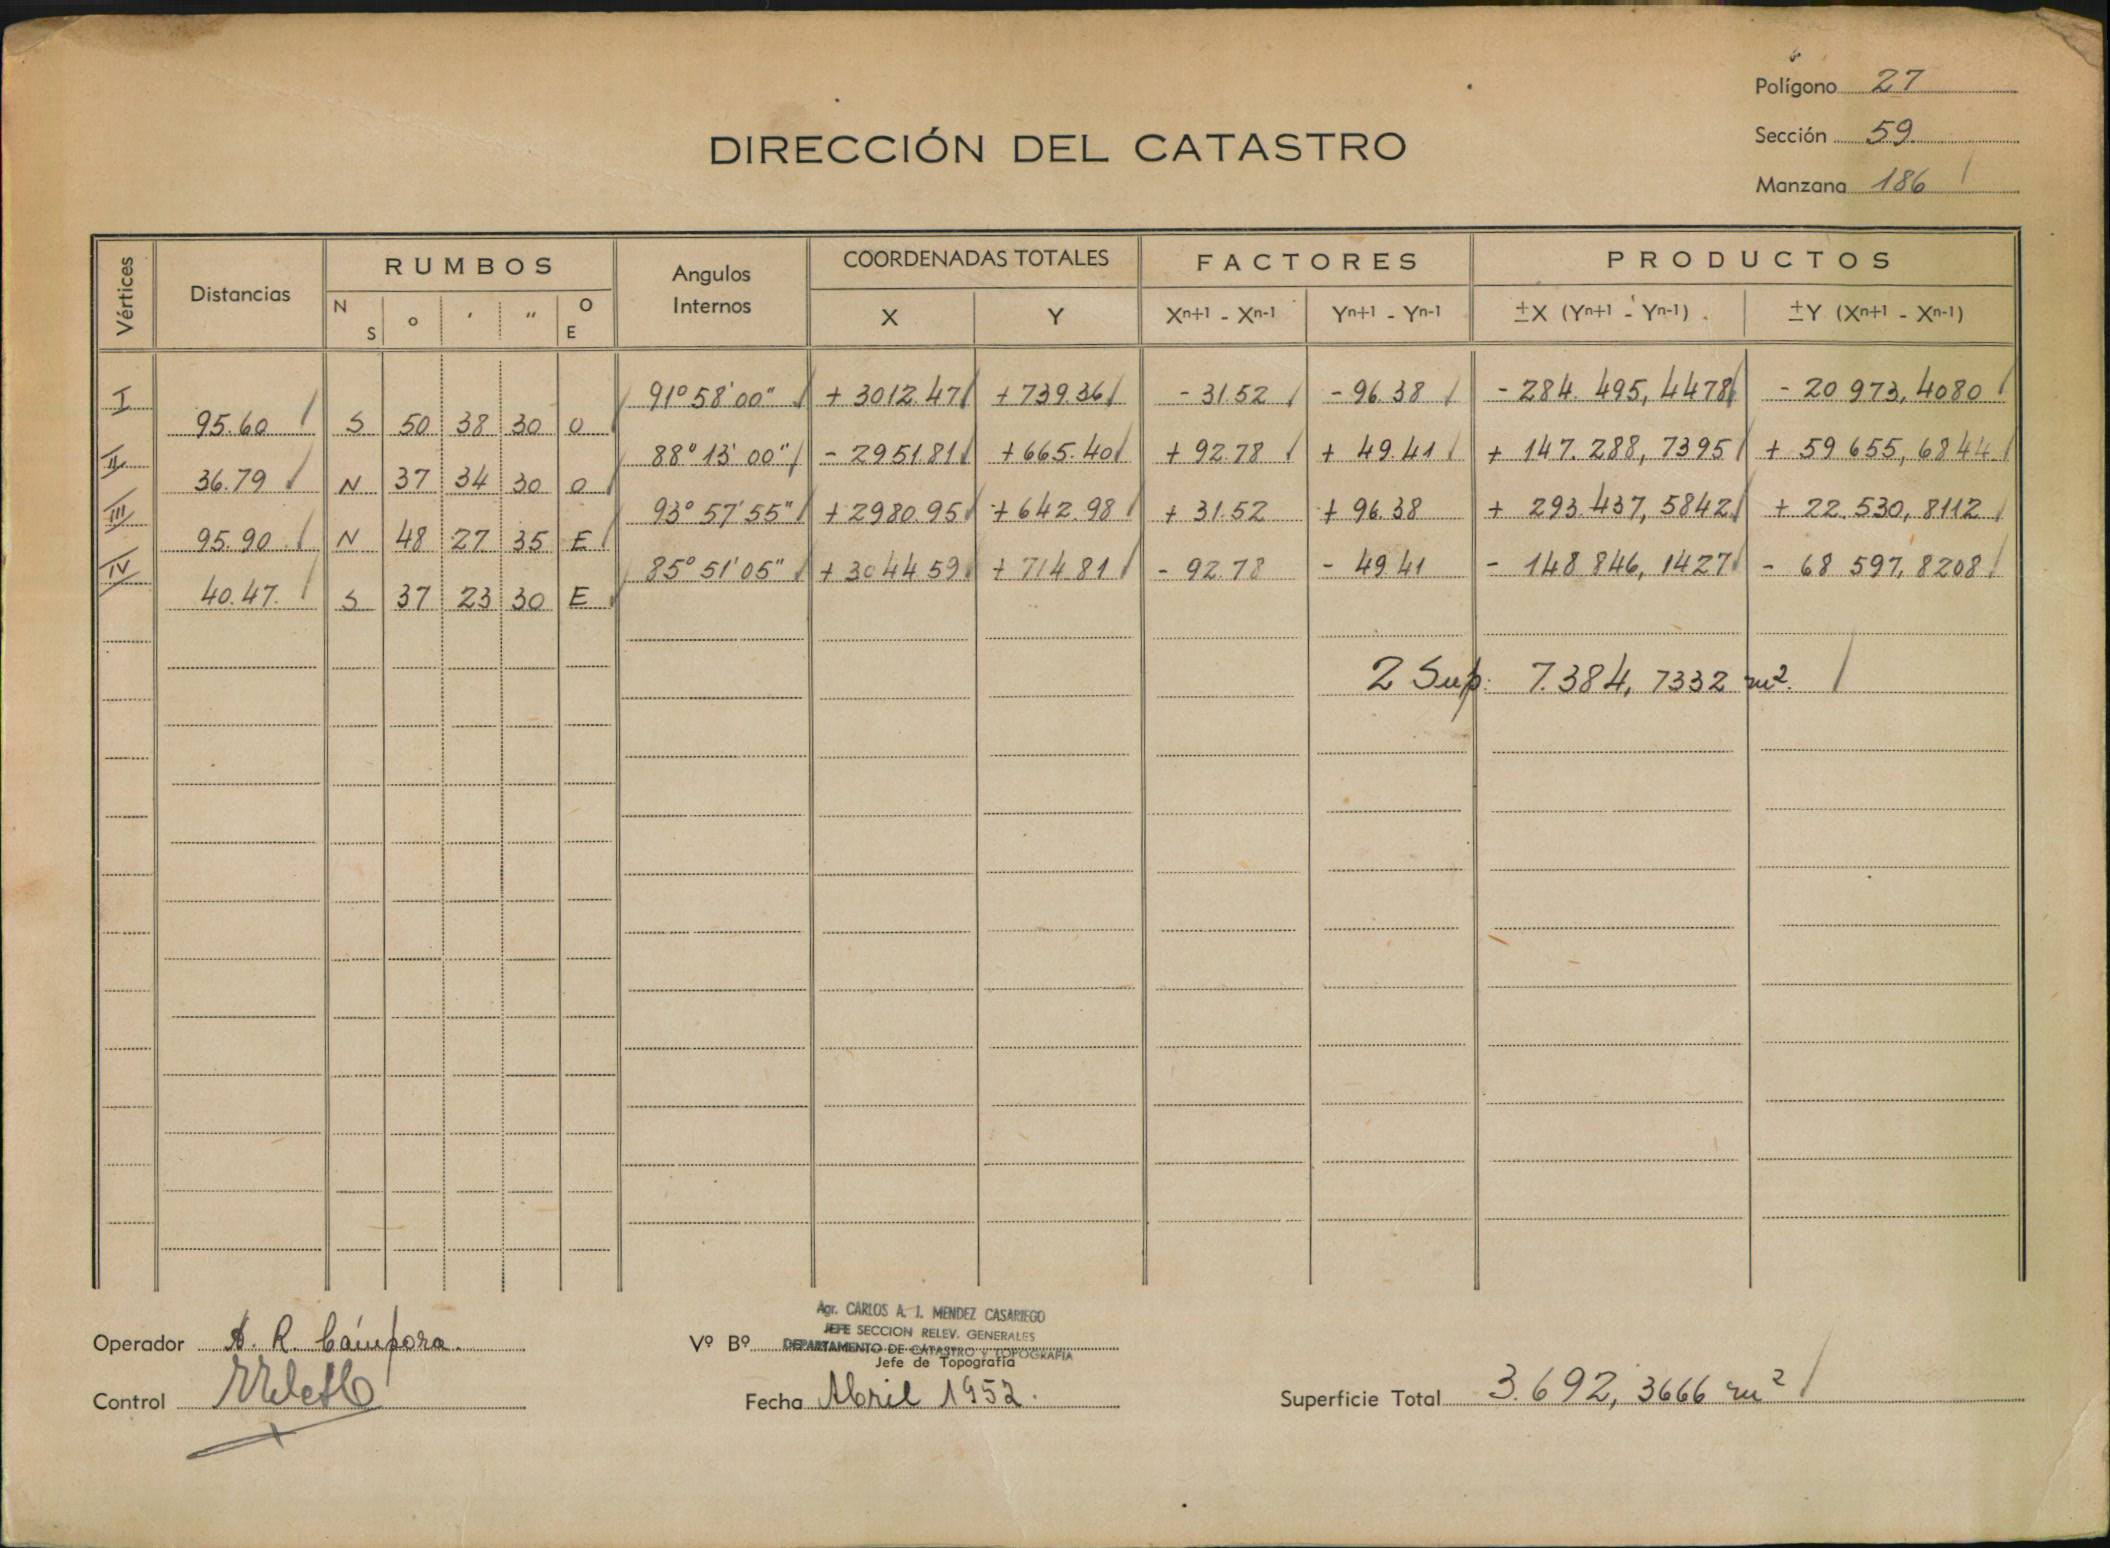 Polígono 27
Sección 59.
Manzana 186
DIRECCIÓN DEL CATASTRO
Vértices Distancias RUMBOS Angulos Internos COORDENADAS TOTALES FACTORES PRODUCTOS
N S o ′ ″ O E X Y Xn+1 - Xn-1 Yn+1 - Yn-1 ±X (Yn+1 - Yn-1) ±Y (Xn+1 - Xn-1)
I 91° 58' 00" + 3012.47 + 739.36 - 31.52 - 96.38 - 284.495,4478 - 20 973,4080
95.60 S 50 38 30 O
II 88° 13' 00" - 2951.81 + 665.40 + 92.78 + 49.41 + 147.288,7395 + 59 655,6844
36.79 N 37 34 30 O
III 93° 57' 55" + 2980.95 + 642.98 + 31.52 + 96.38 + 293.437,5842 + 22.530,8112
95.90 N 48 27 35 E
IV 85° 51' 05" + 3044.59 + 714.81 - 92.78 - 49 41 - 148 846,1427 - 68 597,8208
40.47. S 37 23 30 E
2 Sup: 7.384,7332 m².
Operador A. R. Cámpora.
Vº Bº
Agr. CARLOS A. J. MENDEZ CASARIEGO
JEFE SECCION RELEV. GENERALES
DEPARTAMENTO DE CATASTRO Y TOPOGRAFIA
Jefe de Topografía
Control
Fecha Abril 1952.
Superficie Total 3.692,3666 m²